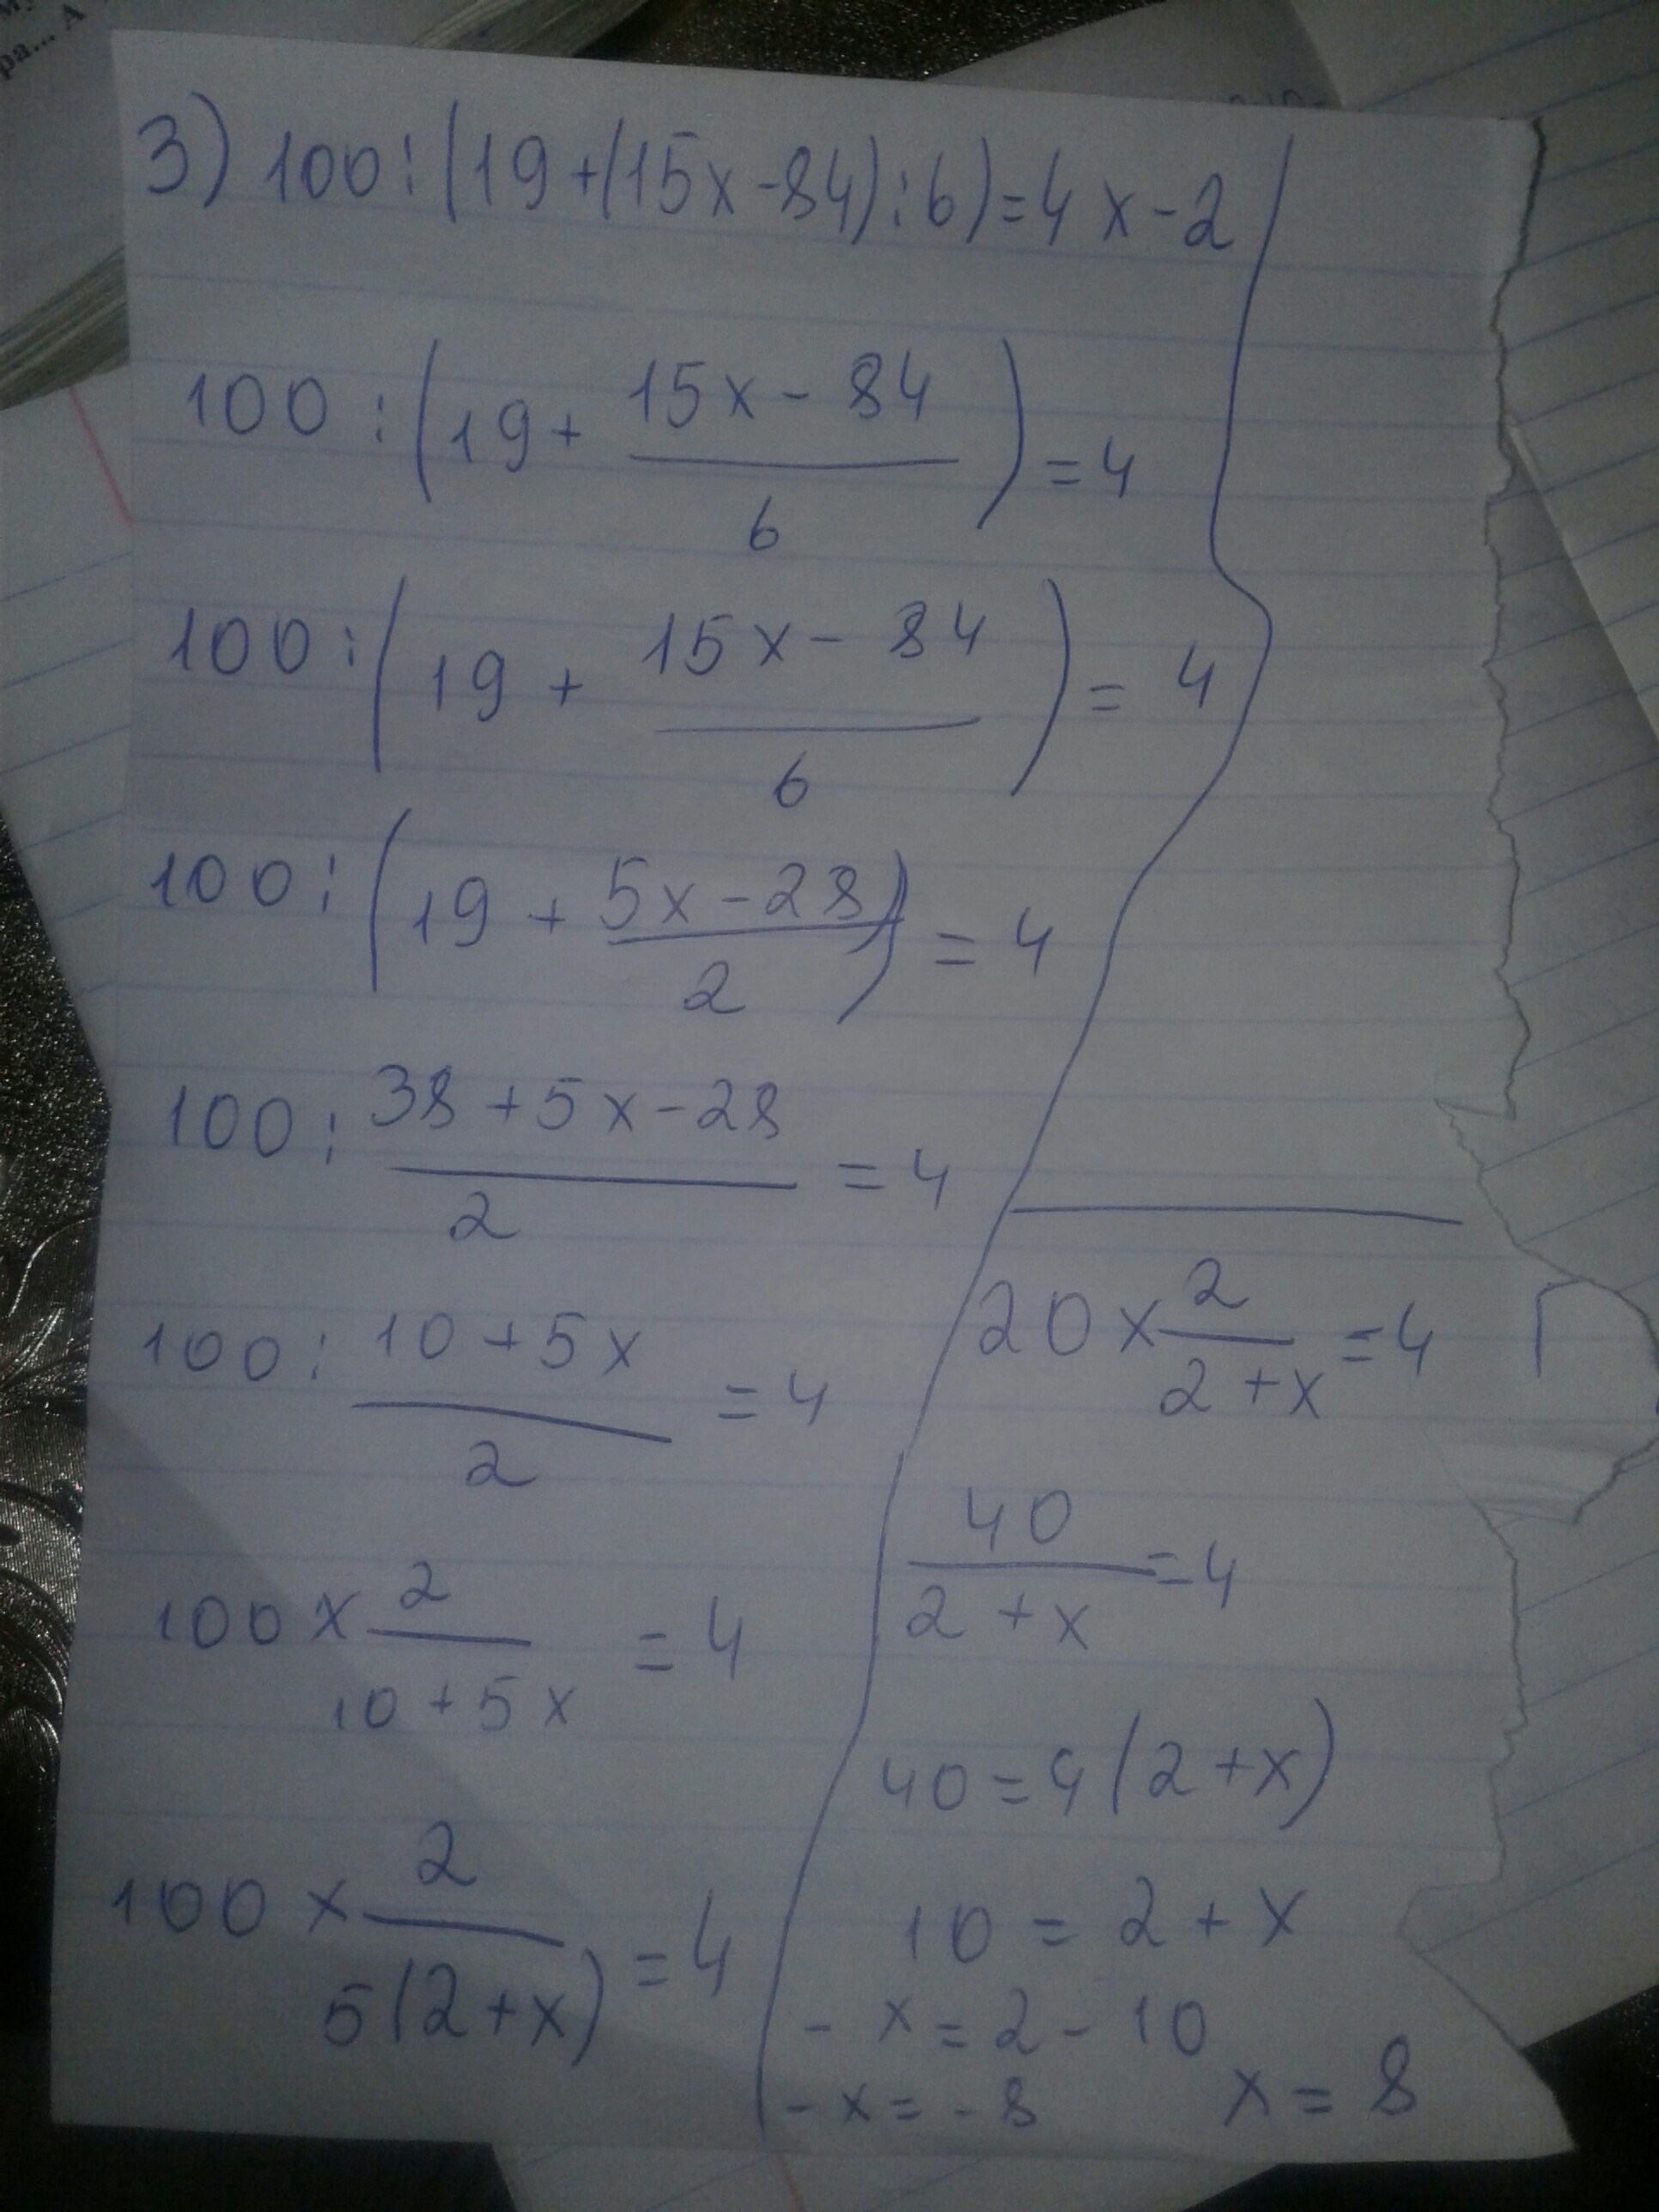 ра... А
3) 100:(19+(15x-84):6)=4x-2
100:(19+\frac{15x-84}{6})=4
100:(19+\frac{15x-84}{6})=4
100:(19+\frac{5x-28}{2})=4
100:\frac{38+5x-28}{2}=4
100:\frac{10+5x}{2}=4
100x\frac{2}{10+5x}=4
100x\frac{2}{5(2+x)}=4
20x\frac{2}{2+x}=4
\frac{40}{2+x}=4
40=4(2+x)
10=2+x
-x=2-10
-x=-8 x=8